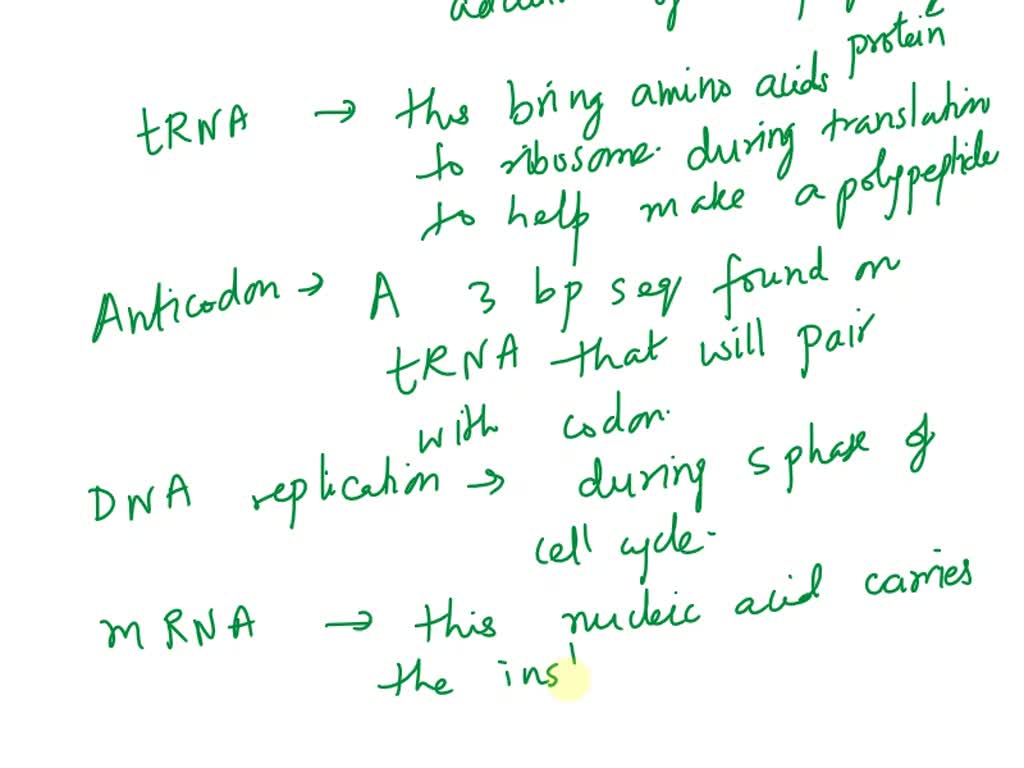 protein
tRNA → this bring amino acids
to ribosome. during translation
to help make a polypeptide
Anticodon → A 3 bp seq found on
tRNA that will pair
with codon.
DNA replication → during S phase of
cell cycle.
mRNA → this nucleic acid carries
the ins